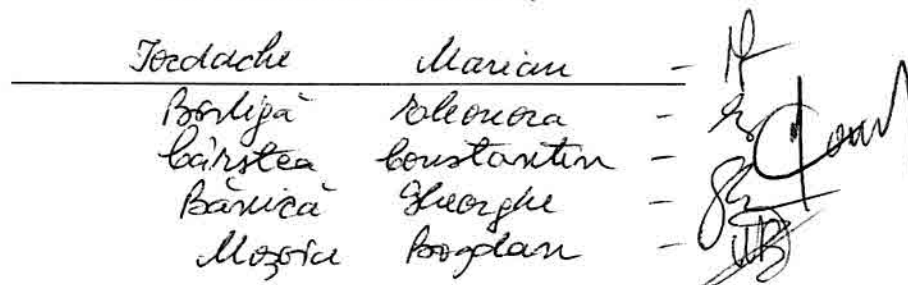 Iordache Marian -
Bârligă Eleonora -
Cârstea Constantin -
Bănică Gheorghe -
Mozoia Bogdan -